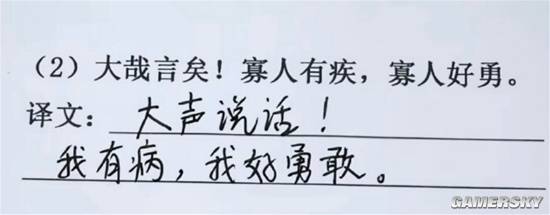 （2）大哉言矣！寡人有疾，寡人好勇。
译文：大声说话！
我有病，我好勇敢。
GAMERSKY